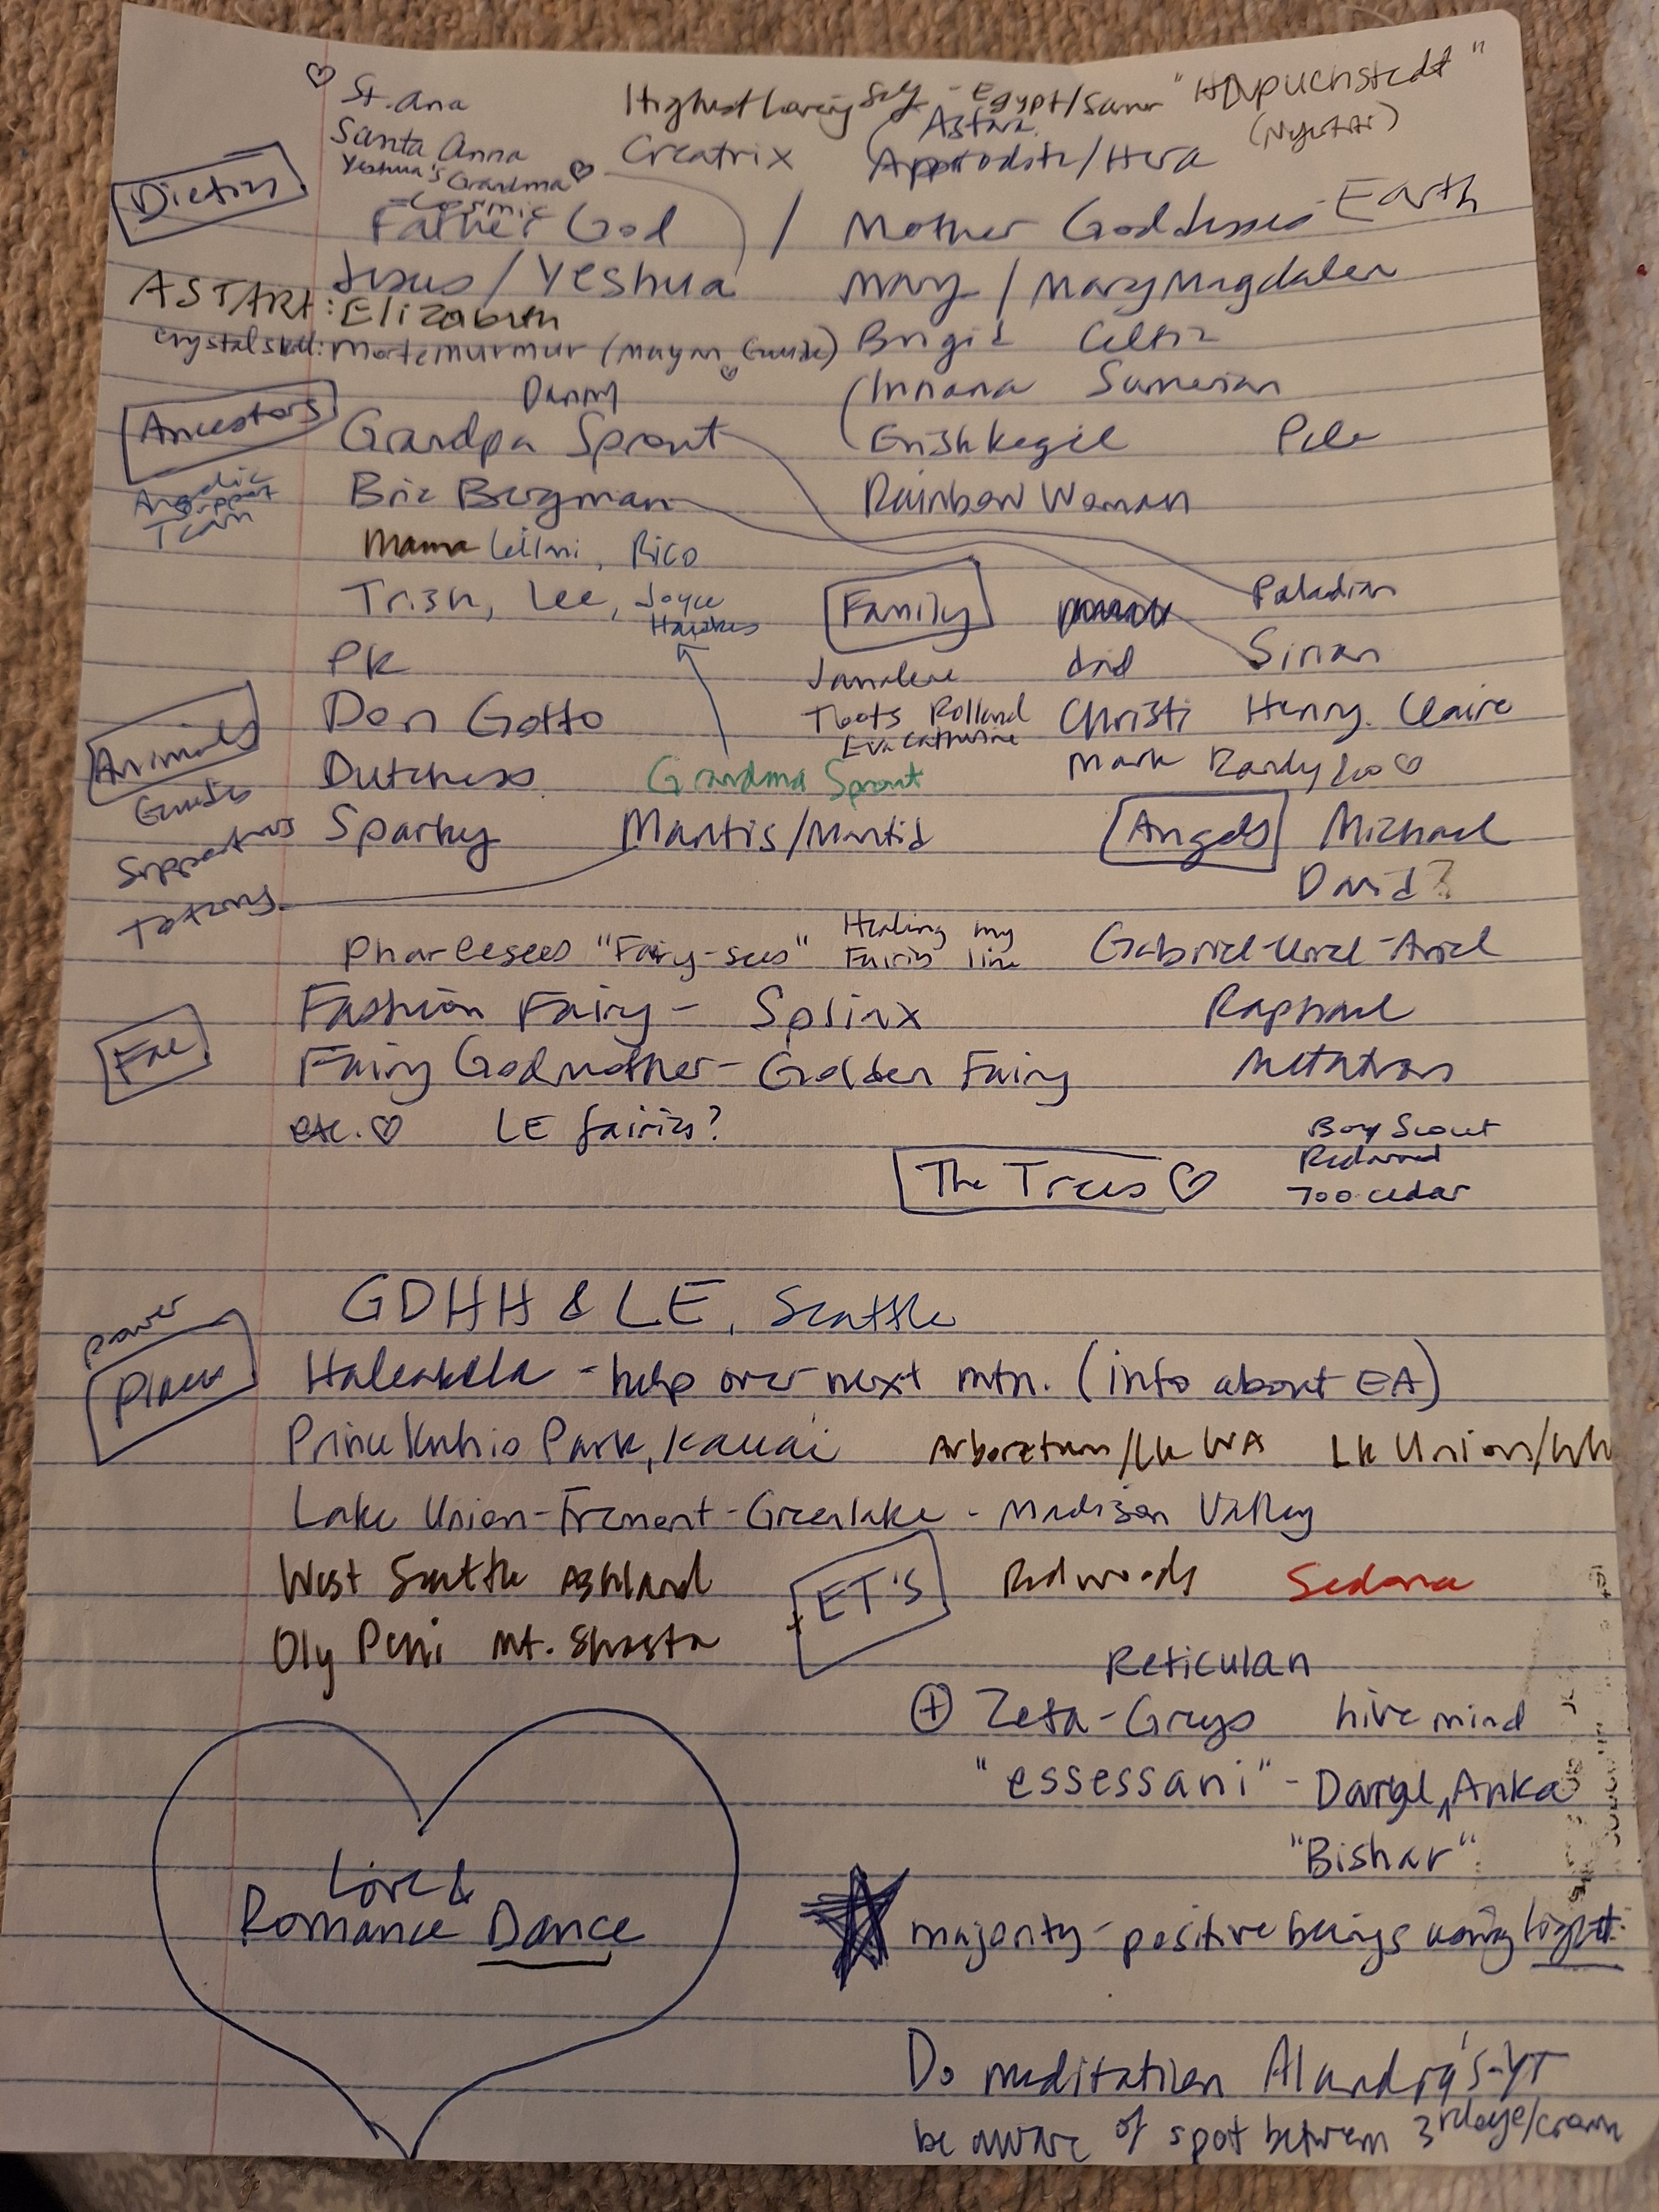 ♡ St. Ana
Highest Loving Self - Egypt/
Santa Anna
Astara
Yeshua's Grandma ♡
Creatrix
/Hera
- Cosmic
Father God / Mother Goddesses - Earth
Jesus / Yeshua
Mary / Mary Magdalen
ASTART: Elizabeth
crystal skull: Mortemurmur (mayan Guide)
Brigid Celtic
Danny
(Innana Sumerian
Ancestors
Grandpa Sprout
Pele
Angelic Support Team
Bergman
Rainbow Woman
Mama Leilani, Rico
Trish, Lee, Joyce
Family
PK
dad
Sirian
Janalene
Don Gotto
Toots Rolland
Christi Henry Claire
Eva Catherine
Animals
Dutchess
Grandma Sprout
Mark Randy
Guides
Sparky
Mantis/Mantid
Angels
Michael
Supporters
David?
Totems
"Fairy-sees"
Healing my
Fairies line
Gabriel-Uriel-Ariel
Fae
Fashion Fairy -
Raphael
Fairy Godmother - Golden Fairy
Metatron
etc. ♡ LE fairies?
Boy Scout
The Trees ♡
Redwood
700 cedar
GDHH & LE, Seattle
power
Places
Haleakela - help over next mtn. (info about EA)
Prince Kuhio Park, Kauai
Arboretum/Lk WA
Lk Union/
Lake Union-Fremont-Greenlake - Madison Valley
West Seattle Ashland
ET'S
Redwoods
Sedona
Oly Peni Mt. Shasta
Reticulan
⊕ Zeta-Greys hive mind
"essessani" - Darryl Anka
"Bishar"
Love &
Romance Dance
★ majority - positive beings using light.
Do meditation Alandra's-YT
be aware of spot between 3rd eye/crown